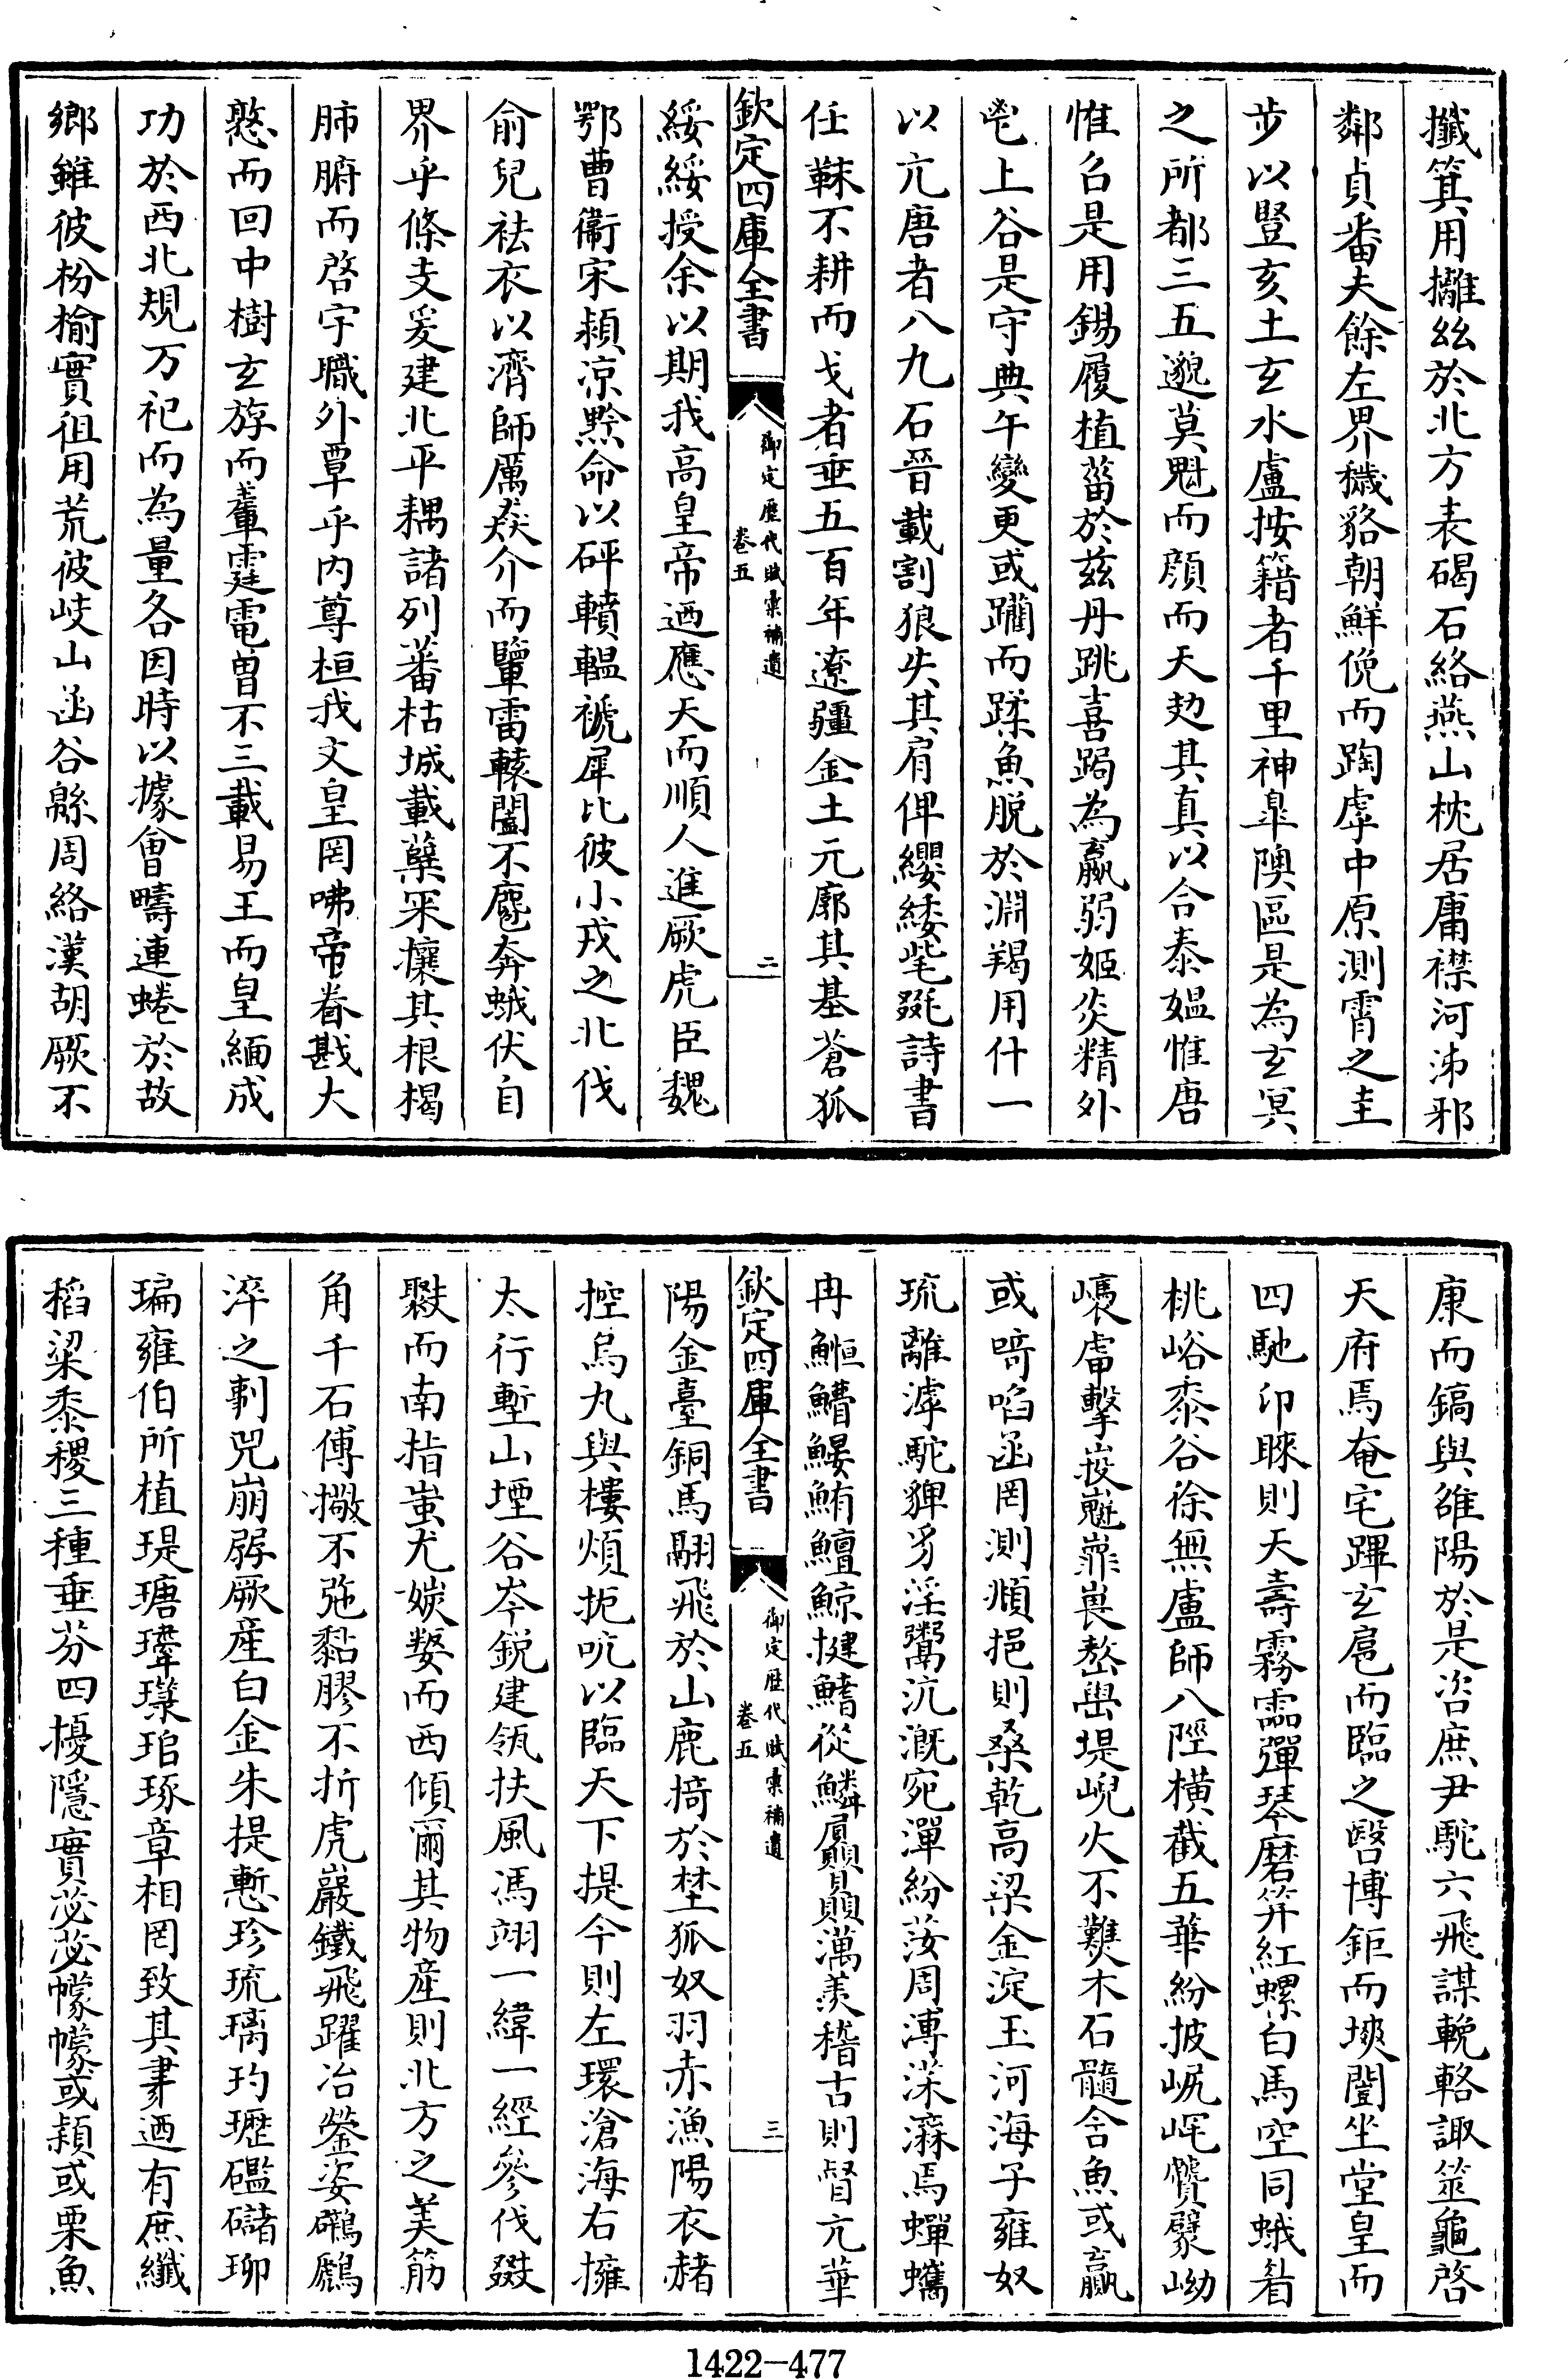 攕箕用攡紘於北方表碣石絡燕山枕居庸襟河沛邪
鄰貞番夫餘左界穢貉朝鮮俛而踘虖中原測霄之圭
步以豎亥土玄水盧按籍者千里神臯隩區是為玄冥
之所都三五邈莫覣而顔而天勀其真以合泰媪惟唐
惟召是用錫履植菑於兹丹跳喜跼為嬴弱姬炎精外
鬯上谷是守典午變更或躪而蹂魚脱於淵羯用什一
以亢唐者八九石晉載割狼失其肩俾纓緌毞毲詩書
任靺不耕而戈者垂五百年遼疆金土元廓其基蒼狐
欽定四庫全書
御定歷代賦彙補遺
卷五
二
綏綏授余以期我高皇帝迺應天而順人進厥虎臣魏
鄂曹衞宋潁凉黔命以砰轒轀褫犀比彼小戎之北伐
俞兒袪衣以濟師厲猋介而鼙雷轅闔不麏奔蛾伏自
界乎條支爰建北平耦諸列蕃枯城載蘖采攘其根揭
肺腑而啓宇職外覃乎内尊桓我文皇罔咈帝眷戡大
憝而回中樹玄斿而輦霆電曽不三載易王而皇緬成
功於西北規万祀而為量各因時以據會疇連蜷於故
鄉雖彼枌榆實徂用荒彼岐山函谷緜周絡漢胡厥不
康而鎬與雒陽於是咨庶尹駝六飛謀輓輅諏筮龜啓
天府焉奄宅蹕玄扈而臨之嘦博鉅而堧闓坐堂皇而
四馳卬睞則天壽霧靁彈琴磨笄紅螺白馬空同蛾眉
桃峪黍谷徐無盧師八陘橫截五華紛披岏㟏巑嬖岰
㠥㡿擊㟎嵬巋㠑嶅嶨堤峴火不難木石髓含魚或嬴
或㗁啗函罔測頫挹則桑乾高梁金淀玉河海子雍奴
琉離滹駝貏豸淫鬻沆溉宛潬紛㳶周漙渿㵝焉蟬蠵
冉䱭鰽鰋鮪鱣鯨揵鰭從鱗屭贔澫羨稽古則督亢華
欽定四庫全書
御定歷代賦彙補遺
卷五
三
陽金臺銅馬翮飛於山鹿掎於埜狐奴羽赤漁陽衣赭
控烏丸與樓煩扼吭以臨天下提今則左環滄海右擁
太行塹山堙谷岑鋭建瓴扶風馮翊一緯一經參伐叕
鼜而南指蚩尤㷉婺而西傾爾其物産則北方之美筋
角千石傅撽不弛黏膠不折虎巖鐵飛躍冶鎣姿䴙鷉
淬之剸兕崩孱厥産白金朱提慙珍琉璃玓瓑礛䃴珋
㻞雍伯所植瑅瑭㻶璞琯琢章相罔致其畫迺有庶纖
稻粱黍稷三種垂芬四擾隱實苾苾幪幪或穎或栗魚
1422-477